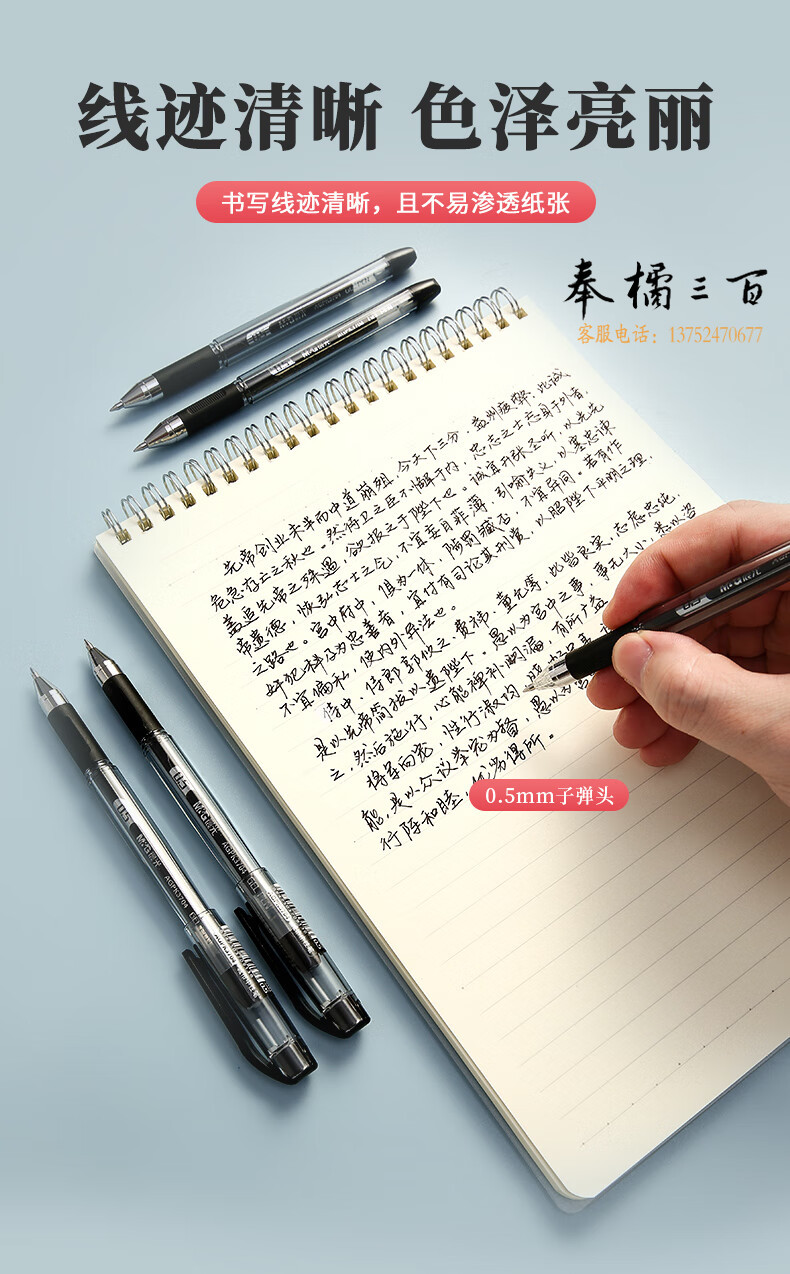 线迹清晰 色泽亮丽
书写线迹清晰，且不易渗透纸张
奉橘三百
客服电话：13752470677
先帝创业未半而中道崩殂，今天下三分，益州疲弊，此诚
危急存亡之秋也。然侍卫之臣不懈于内，忠志之士忘身于外者，
盖追先帝之殊遇，欲报之于陛下也。诚宜开张圣听，以光先
帝遗德，恢弘志士之气，不宜妄自菲薄，引喻失义，以塞忠谏
之路也。宫中府中，俱为一体，陟罚臧否，不宜异同。若有作
奸犯科及为忠善者，宜付有司论其刑赏，以昭陛下平明之理，
不宜偏私，使内外异法也。
侍中、侍郎郭攸之、费祎、董允等，此皆良实，志虑忠纯，
是以先帝简拔以遗陛下。愚以为宫中之事，事无大小，悉以咨
之，然后施行，必能裨补阙漏，有所广益
将军向宠，性行淑均
能，是以众议举宠为督，愚以为
行阵和睦，优劣得所。
0.5mm子弹头
0.5
M&G晨光
AGPK3704
0.5
M&G晨光
AGPK3704
0.5
M&G晨光